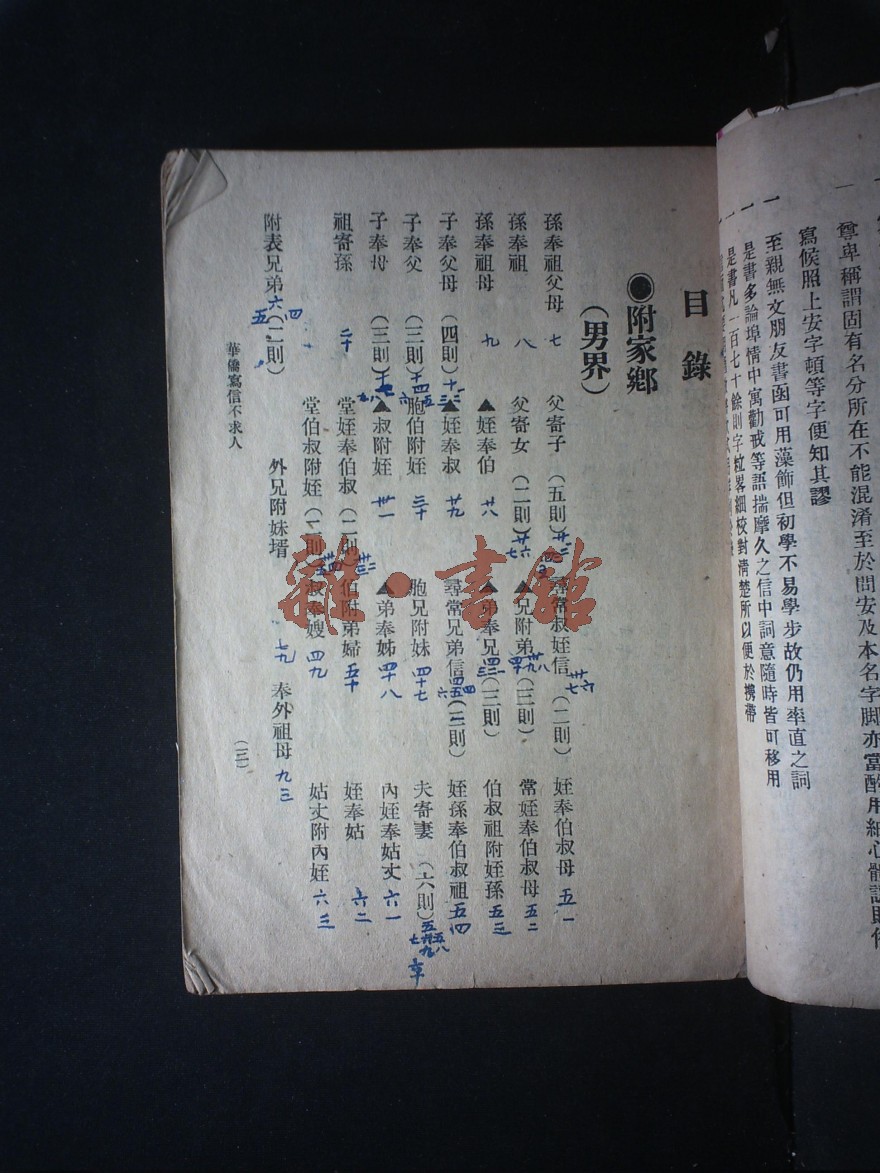 尊卑稱謂固有名分所在不能混淆至於問安及本名字脚亦當酌用細心體認則
寫候照上安字頓等字便知其謬
一 至親無文朋友書函可用藻飾但初學不易學步故仍用率直之詞
一 是書多論埠情中寓勸戒等語揣摩久之信中詞意隨時皆可移用
一 是書凡一百七十餘則字粒畧細校對清楚所以便於携帶
目錄
●附家鄉
(男界)
孫奉祖父母 七 父寄子 (五則) 尋常叔姪信 (二則) 姪奉伯叔母 五一
孫奉祖 八 父寄女 (二則) 廿六 ▲兄附弟 (三則) 常姪奉伯叔母 五二
孫奉祖母 九 ▲姪奉伯 廿八 ▲弟奉兄 (三則) 伯叔祖附姪孫 五三
子奉父母 (四則) ▲姪奉叔 廿九 尋常兄弟信 (三則) 姪孫奉伯叔祖 五四
子奉父 (三則) 胞伯附姪 三十 胞兄附妹 四十七 夫寄妻 (六則)
子奉母 (三則) ▲叔附姪 卅一 ▲弟奉姊 四十八 內姪奉姑丈 六一
祖寄孫 二十 堂姪奉伯叔 (二則) 伯附弟婦 五十 姪奉姑 六二
堂伯叔附姪 (二則) 叔奉嫂 四九 姑丈附內姪 六三
附表兄弟 (二則) 外兄附妹壻 七九 奉外祖母 九三
華僑寫信不求人
(三)
雜·書館